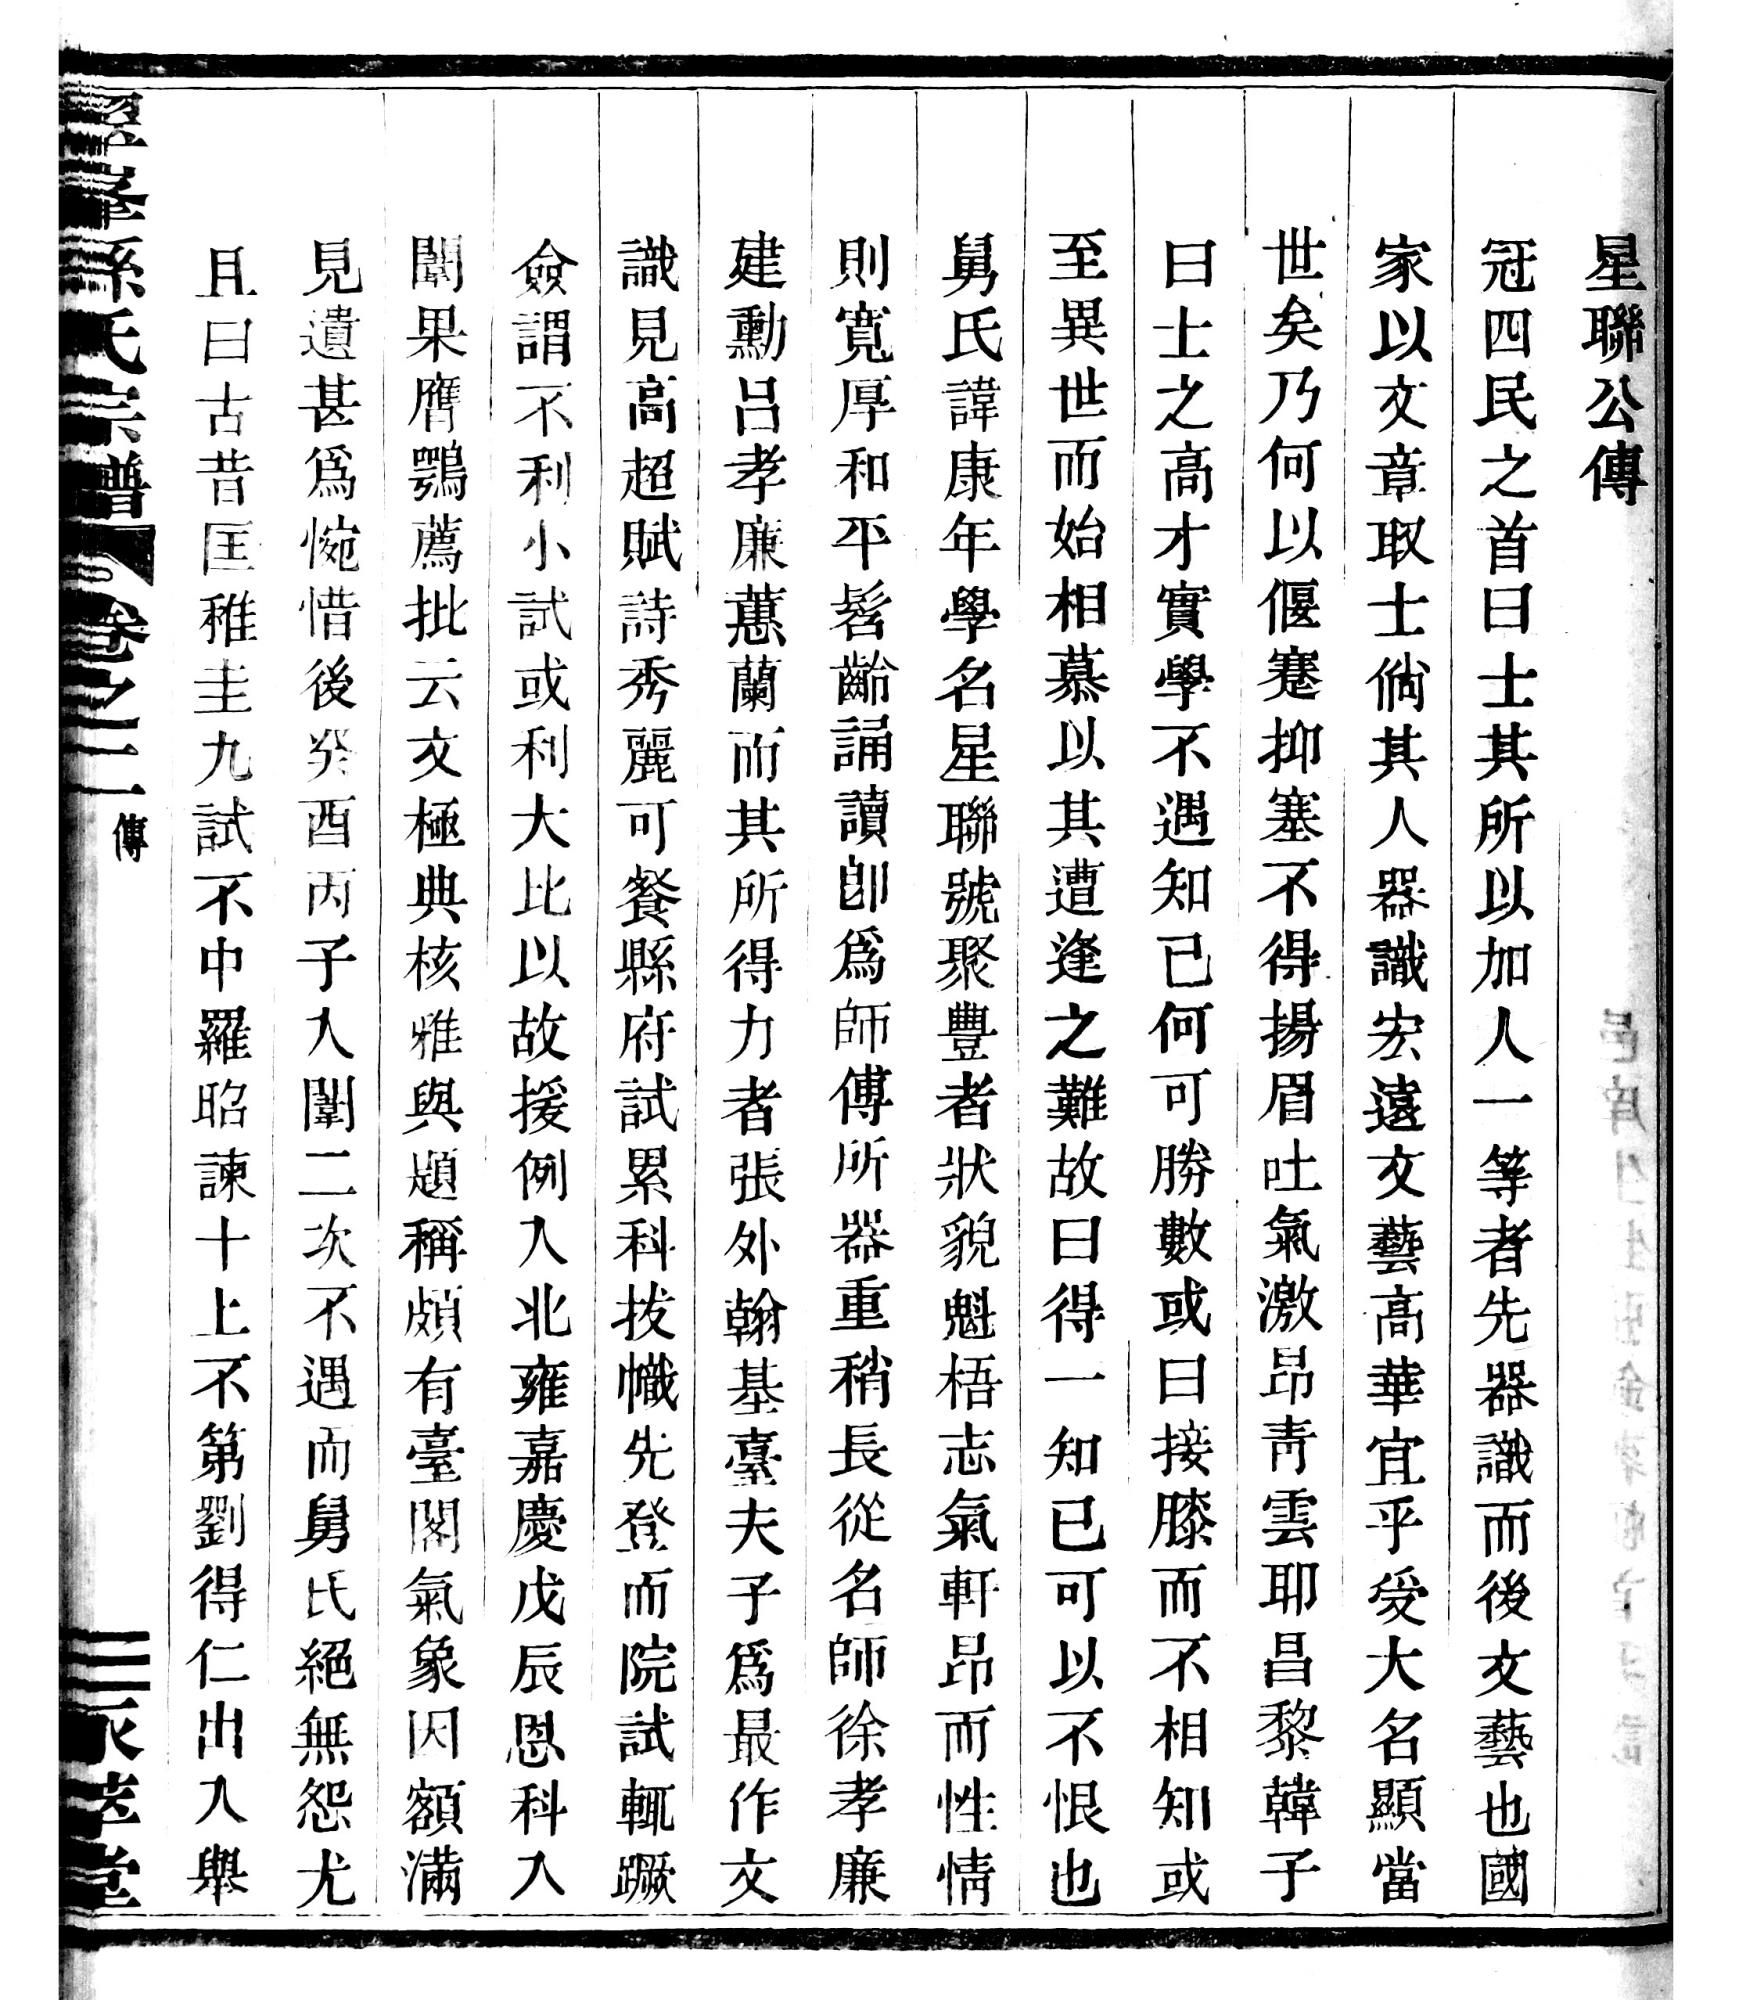 星聯公傳
冠四民之首曰士其所以加人一等者先器識而後文藝也國
家以文章取士倘其人器識宏遠文藝高華宜乎受大名顯當
世矣乃何以偃蹇抑塞不得揚眉吐氣激昂青雲耶昌黎韓子
曰士之高才實學不遇知已何可勝數或曰接膝而不相知或
至異世而始相慕以其遭逢之難故曰得一知已可以不恨也
舅氏諱康年學名星聯號聚豐者狀貌魁梧志氣軒昂而性情
則寬厚和平髫齡誦讀即爲師傅所器重稍長從名師徐孝廉
建勳呂孝廉蕙蘭而其所得力者張外翰基臺夫子爲最作文
識見高超賦詩秀麗可餐縣府試累科拔幟先登而院試輒蹶
僉謂不利小試或利大比以故援例入北雍嘉慶戊辰恩科入
闈果膺鶚薦批云文極典核雅與題稱頗有臺閣氣象因額滿
見遺甚爲惋惜後癸酉丙子入闈二次不遇而舅氏絕無怨尤
且曰古昔匡稚圭九試不中羅昭諫十上不第劉得仁出入舉
孫氏宗譜 卷之二 傳 堂